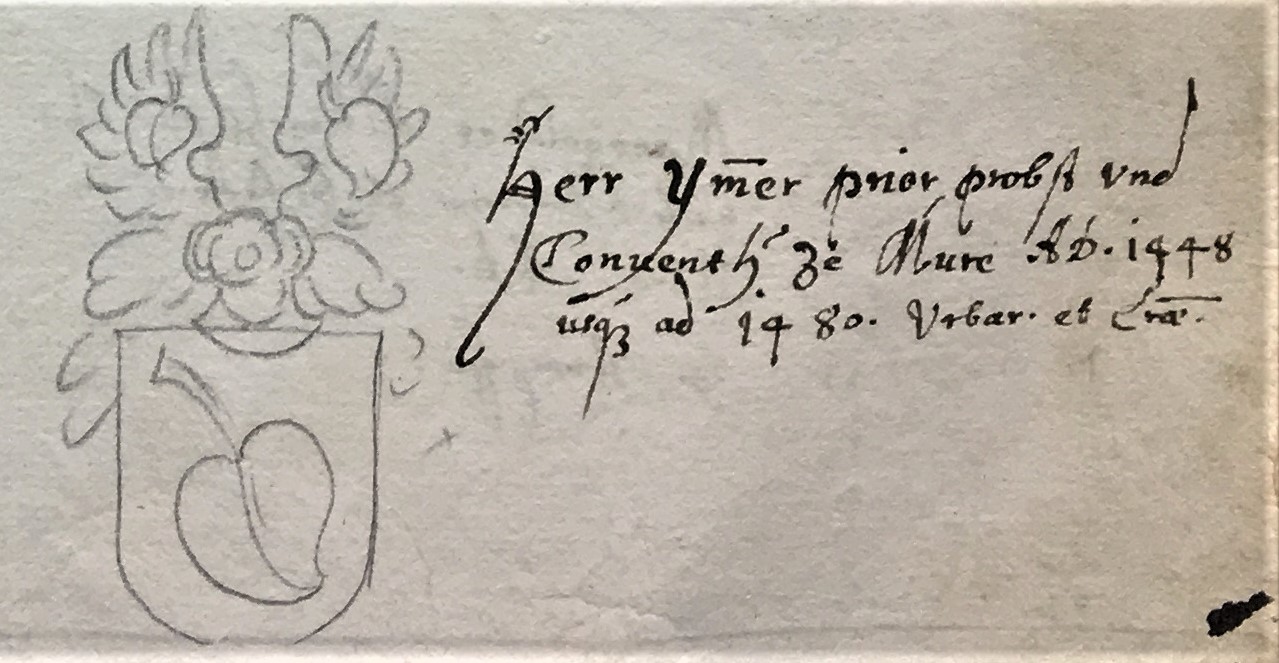 Herr Ym̄er prior probst vnd
Conuenth͛ ze Mure AD. 1448
usq₃ ad 1480. Vrbar. et